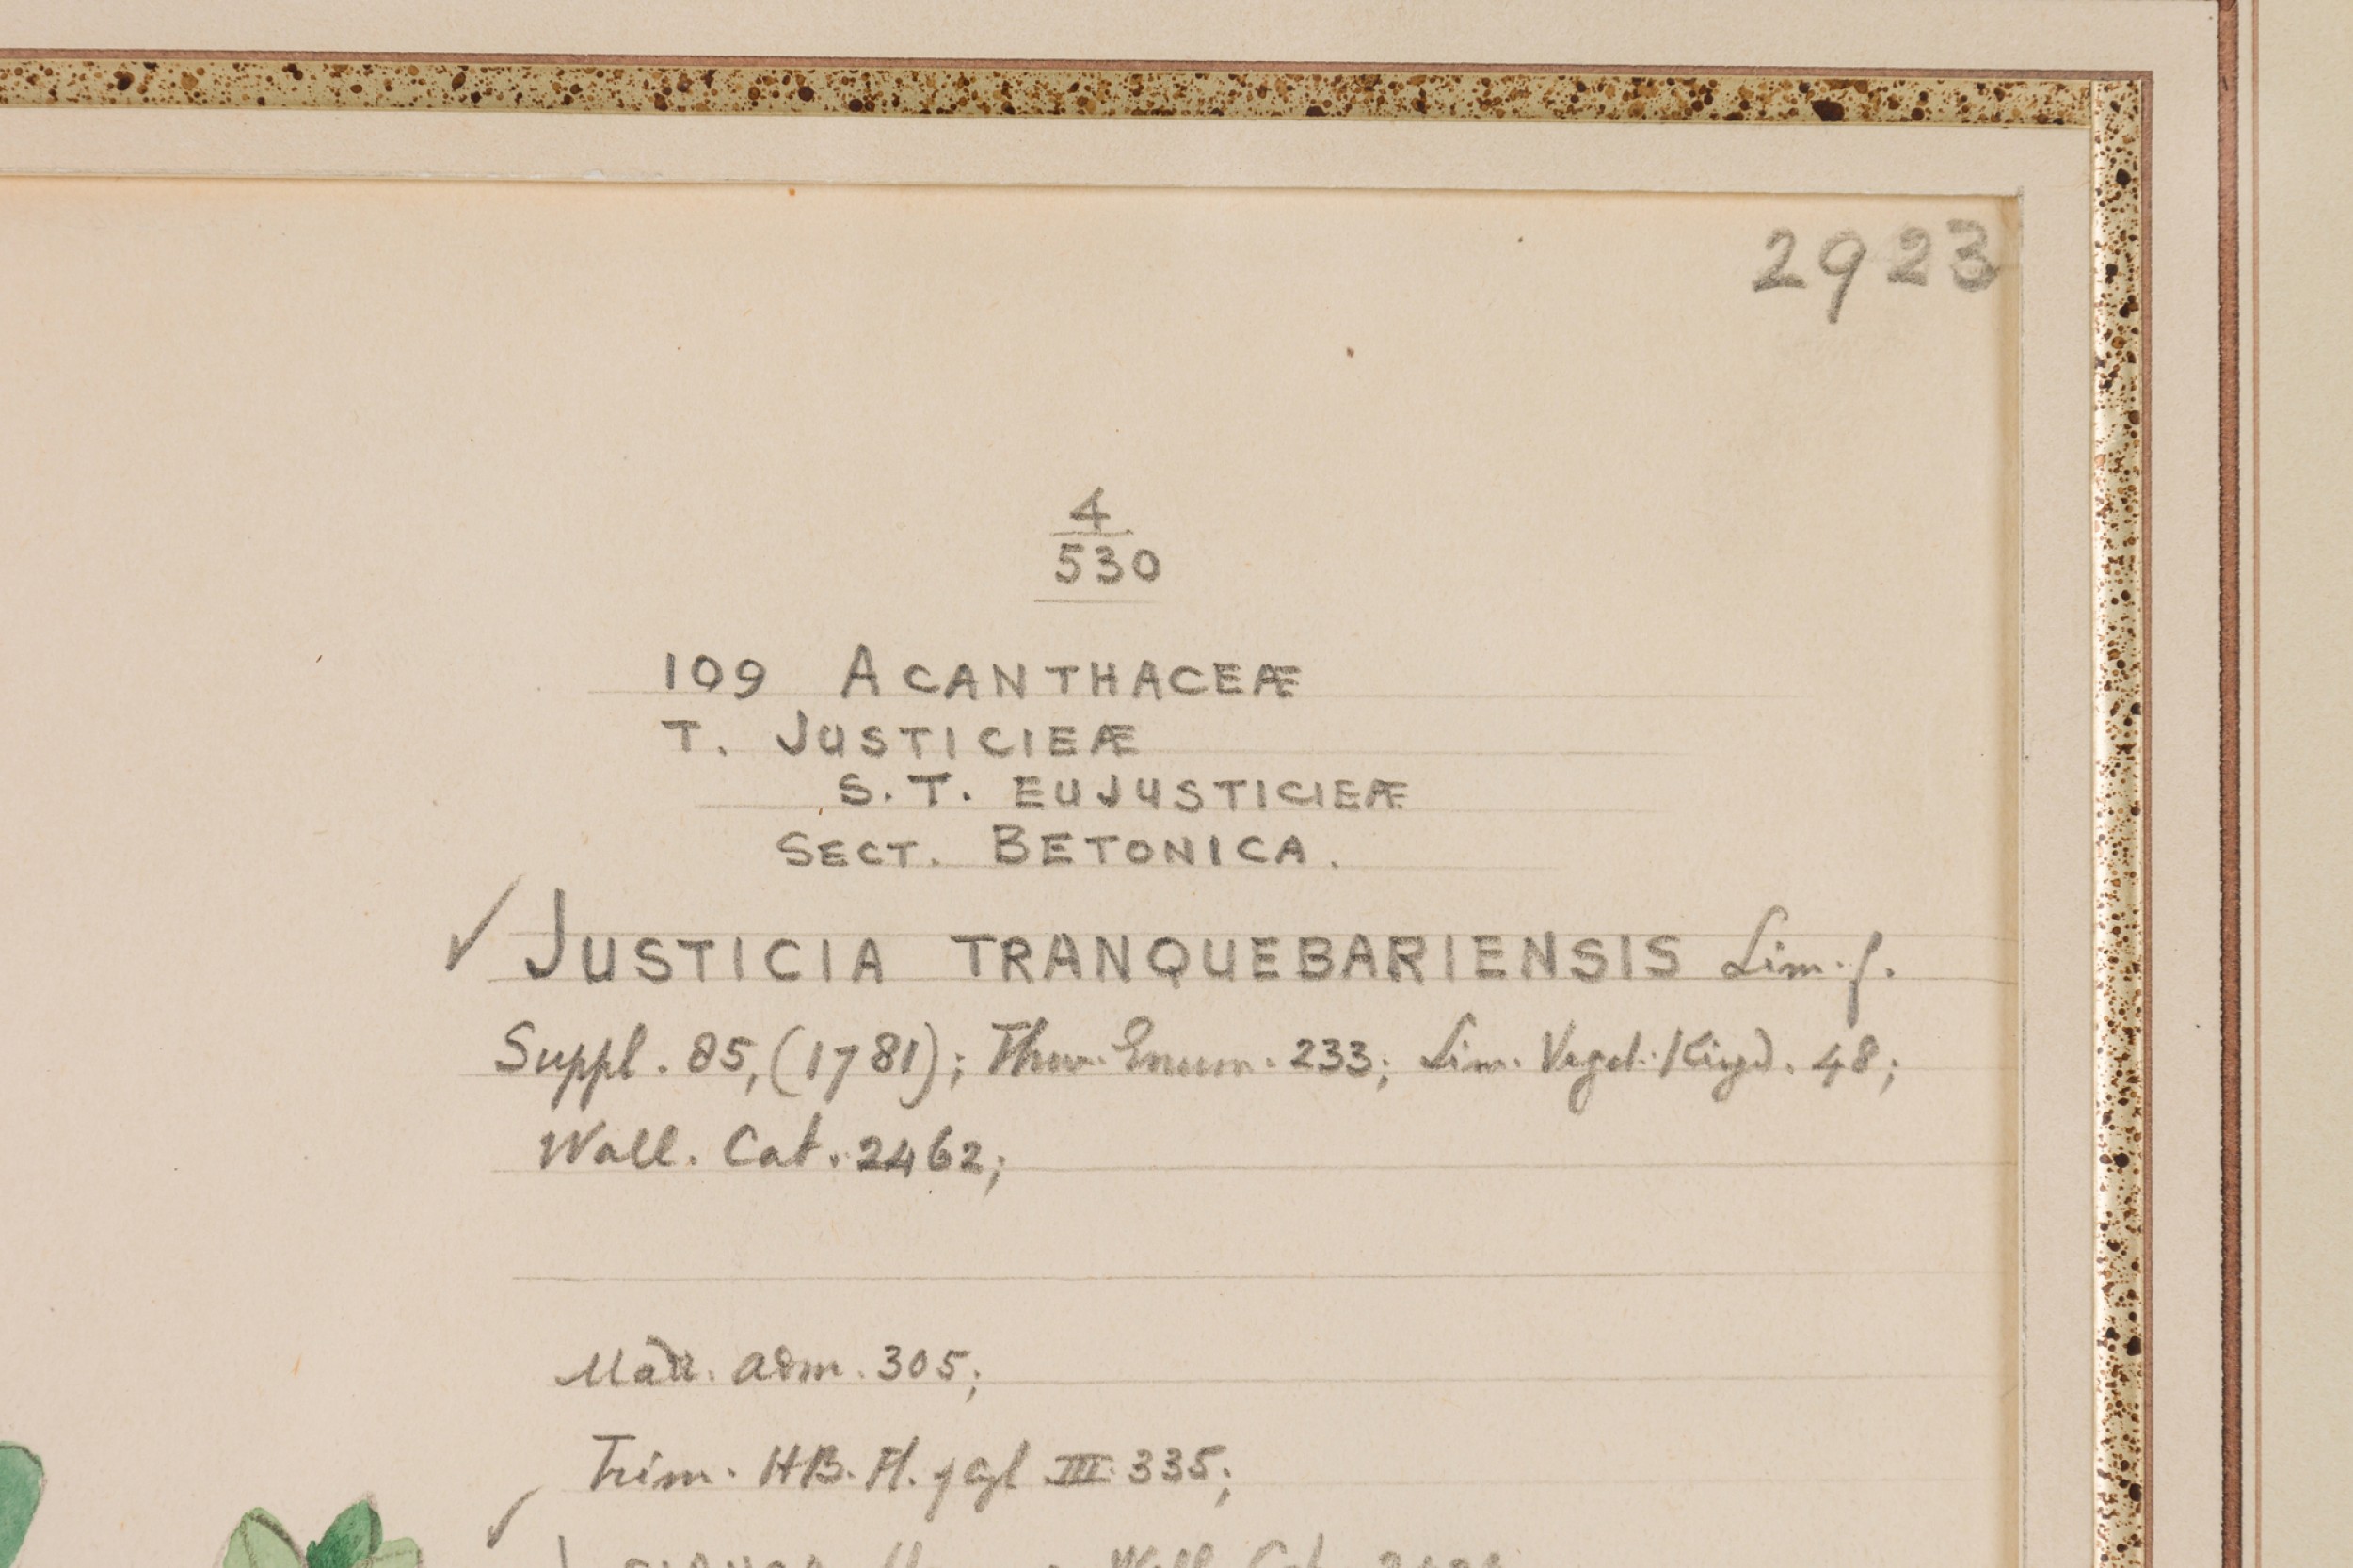 2923
4
530
109 ACANTHACEÆ
T. JUSTICIEÆ
S.T. EUJUSTICIEÆ
SECT. BETONICA.
✓ JUSTICIA TRANQUEBARIENSIS Linn. f.
Suppl. 85, (1781); Thw. Enum. 233; Lin. Veget. Kingd. 48;
Wall. Cat. 2462;
adm. 305;
Trim. HB. Fl. of Cyl III 335;
✓
Wall. Cat.